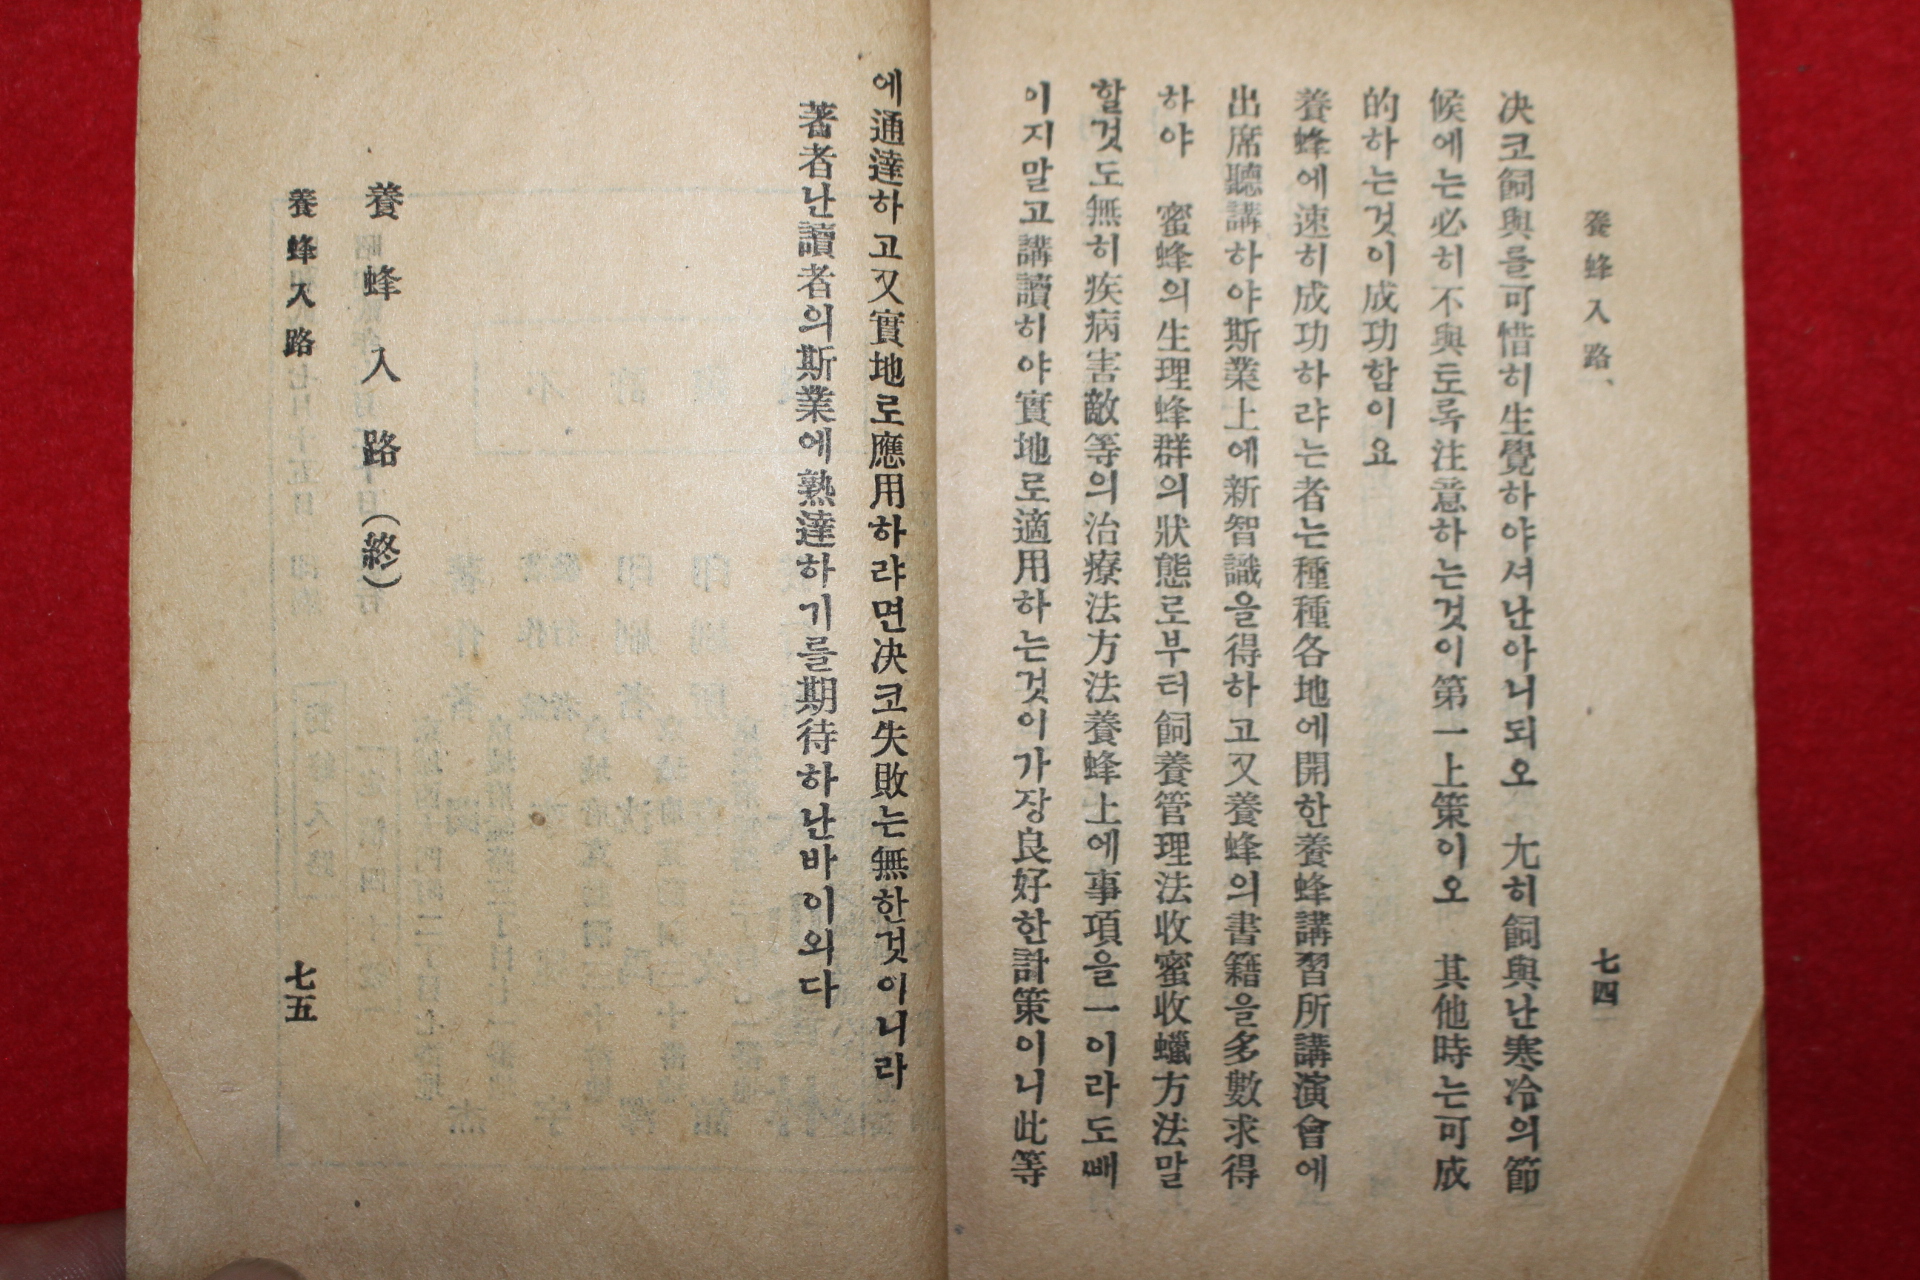 養蜂入路
七四
决코飼與를可惜히生覺하야셔난아니되오 尤히飼與난寒冷의節
候에는必히不與토록注意하는것이第一上策이오 其他時는可成
的하는것이成功함이요
養蜂에速히成功하랴는者는種種各地에開한養蜂講習所講演會에
出席聽講하야斯業上에新智識을得하고又養蜂의書籍을多數求得
하야 蜜蜂의生理蜂群의狀態로부터飼養管理法收蜜收蠟方法말
할것도無히疾病害敵等의治療法方法養蜂上에事項을一이라도빼
이지말고講讀하야實地로適用하는것이가장良好한計策이니此等
에通達하고又實地로應用하랴면决코失敗는無한것이니라
著者난讀者의斯業에熟達하기를期待하난바이외다
養蜂入路(終)
養蜂入路
七五